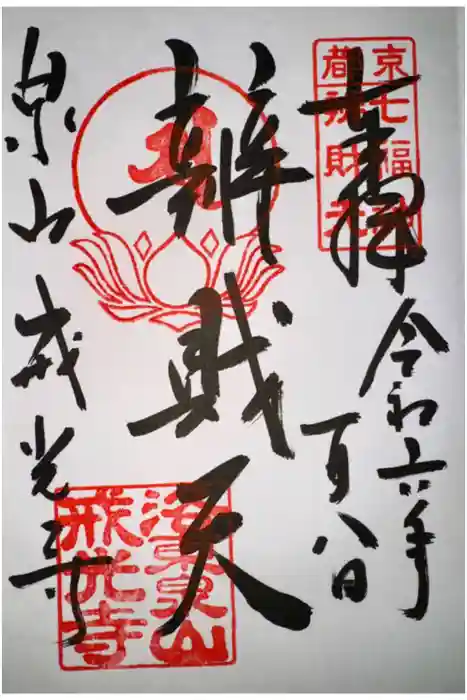 奉拝
令和六年
一月八日
辨財天
泉山 戒光寺
京七福
都辨財天
戒光寺